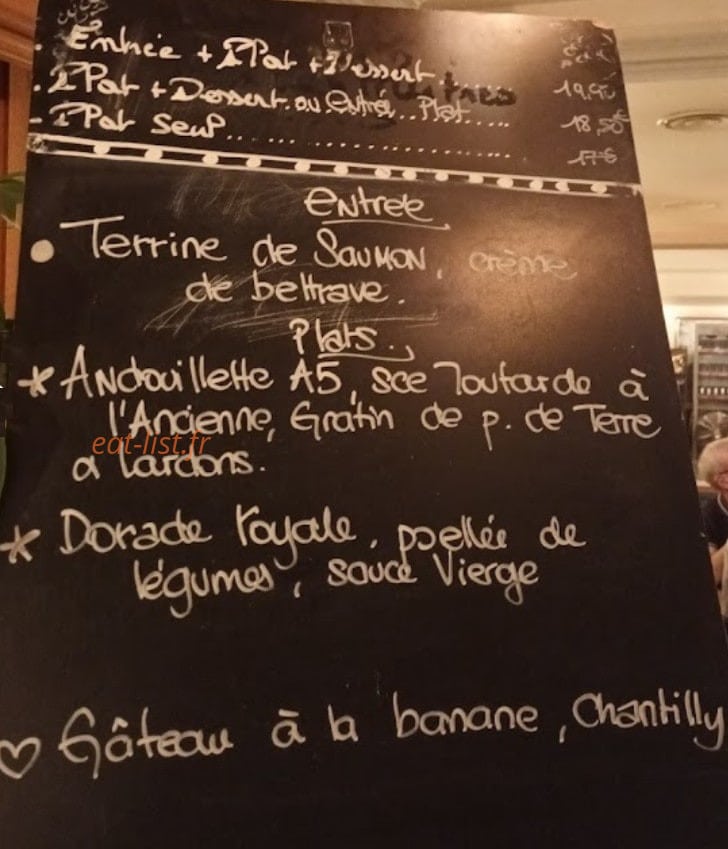 . Entrée + 1 Plat + Dessert ..... 19,90
. 1 Plat + Dessert ou Entrée + Plat ..... 18,50€
- 1 Plat seul .......................... 17€
Entrée
• Terrine de Saumon, crème
de bettrave.
Plats.
* Andouillette A5, sce Toutarde à
l'Ancienne, Gratin de p. de Terre
eat-list.fr
a Lardons.
* Dorade royale, poellée de
légumes, sauce Vierge
♡ Gâteau à la banane, Chantilly